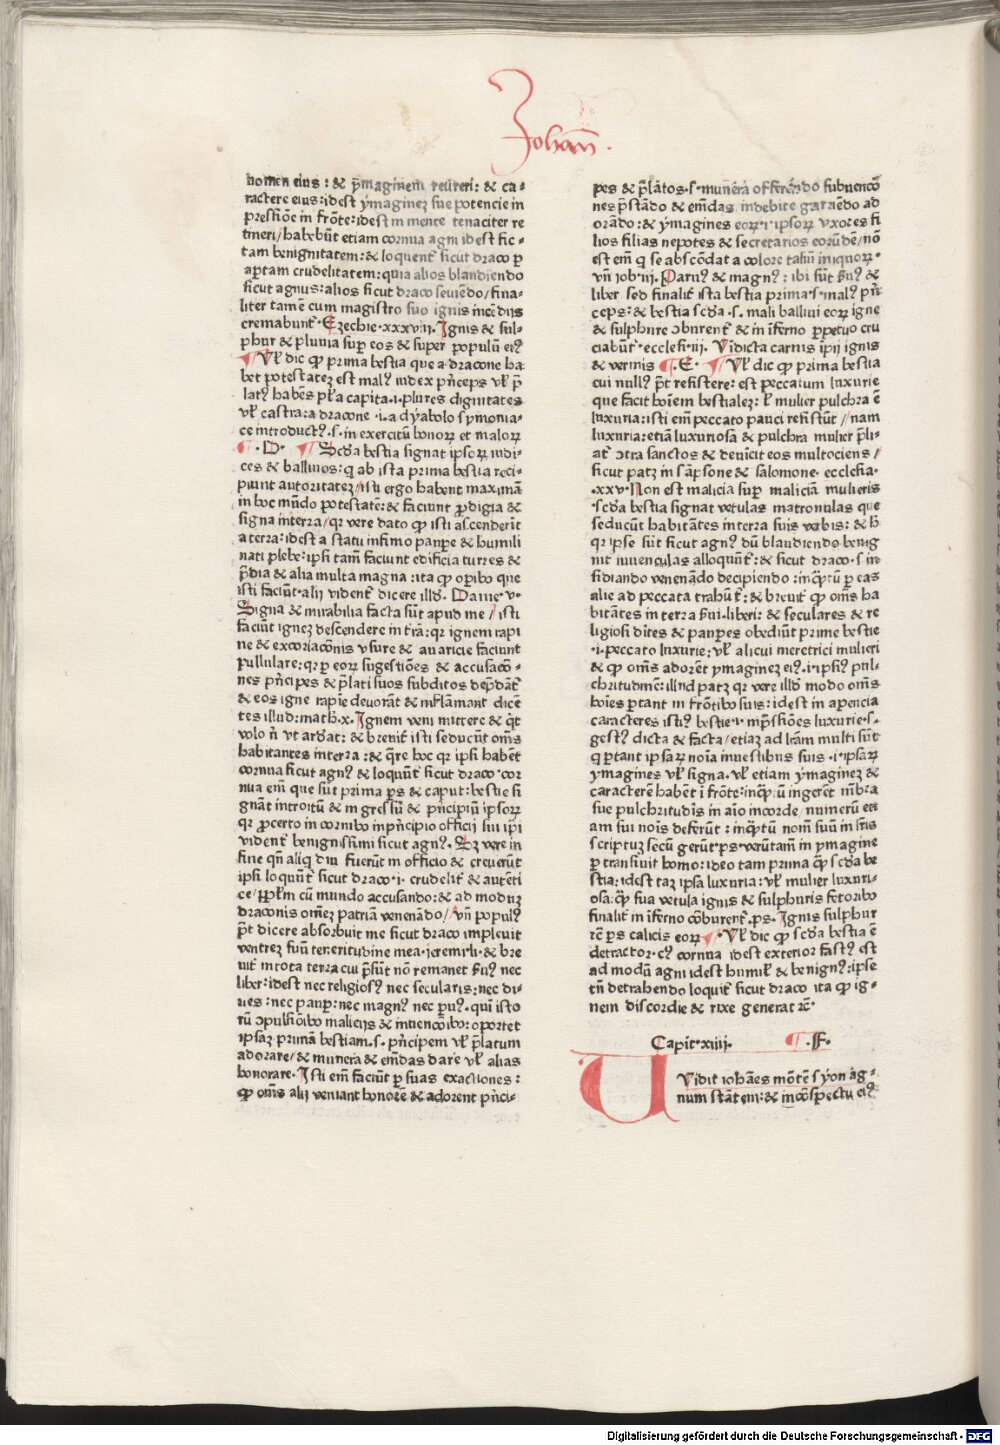 Johan̄.
nomen eius: & ẏmaginem reureri: & ca⸗
ractere eius: idest ẏmaginez sue potencie in
pressiōe in frōte: idest in mente tenaciter re
tineri/ habebūt etiam cornua agni idest fic⸗
tam benignitatem: & loquent̄ sicut draco p
aptam crudelitatem: quia alios blandiendo
sicut agnus: alios sicut draco seuiēdo/ fina⸗
liter tamē cum magistro suo ignis incēdijs
cremabunt̄. Ezechie.xxxviii. Ignis & sul⸗
phur & pluuia sup eos & super populū eiꝰ
¶ Vl̄ dic ꝙ prima bestia que a dracone ha⸗
bet potestatez est malꝰ iudex pn̄ceps vl̄ p̄
latꝰ habēs pl̄a capita.i.plures dignitates
vl̄ castra: a dracone .i.a dẏabolo sẏmonia⸗
ce introductꝰ.s.in exercitū bonoꝝ et maloꝝ
¶.D. ¶ Scd̄a bestia signat ipsoꝝ iudi⸗
ces & balliuos: q ab ista prima bestia reci⸗
piunt autoritatez/ isti ergo habent maximā
in hoc mūdo potestatē: & faciunt ꝓdigia &
signa interra/ qr vere dato ꝙ isti ascenderīt
aterra: idest a statu infimo paupe & humili
nati plebe: ipsi tam̄ faciunt edificia turres &
p̄dia & alia multa magna: ita ꝙ oꝑibꝰ que
isti faciūt. alij vident̄ dicere illd̄. Danie.v.
Signa & mirabilia facta sūt apud me/ isti
faciūt ignez descendere in trā: qr ignem rapi
ne & excoriacōnis vsure & auaricie faciunt
pullulare: qr ꝑ eoꝝ sugestiōes & accusacō⸗
nes pn̄cipes & p̄lati suos subditos dep̄dāt̄
& eos igne rapīe deuorāt & īnflāmant dicē
tes illud: math̄.x. Ignem veni mittere & qt̄
volo n̄ vt ardat: & breuit̄ isti seducūt oēs
habitantes interra: & qr̄e hoc qr ipsi habēt
cornua sicut agnꝰ & loquūt̄ sicut draco. cor
nua em̄ que sūt prima ps & caput: bestie si
gnāt introitū & ingressū & pn̄cipiū ipsoꝝ
qr ꝓcerto in cornibꝰ inpn̄cipio officij sui ipi
vident̄ benignissimi sicut agnꝰ. Sz vere in
fine qn̄ aliq diu fuerūt in officio & creuerūt
ipsi loquūt̄ sicut draco .i. crudelit̄ & autēti
ce/ ppl̄m cū mundo accusando: & ad moduz
draconis oēmez patriā venenādo/ vn̄ populꝰ
pt̄ dicere absorbuit me sicut draco impleuit
ventrez suū teneritudine mea. ieremi.li. & bre
uit̄ in tota terra cui pn̄sūt nō remanet s̄uꝰ nec
liber: idest nec religiosꝰ nec secularis: nec di⸗
ues: nec paup: nec magnꝰ nec puꝰ. qui isto
rū ↄpulsiōibꝰ malicijs & inuencōibꝰ: oportet
ipsaz primā bestiam.s. pn̄cipem vl̄ p̄latum
adorare/ & munera & em̄das dare vl̄ alias
honorare. Isti em̄ faciūt ꝑ suas exactiones:
ꝙ oēs alij veniant honore & adorent pn̄ci⸗
pes & p̄latos.s.munera offerēdo subuencō
nes p̄stādo & em̄das indebite gariēdo ad
orādo: & ẏmagines eoꝝ.i.ipsoꝝ vxores fi
lios filias nepotes & secretarios eorūdē/ nō
est em̄ q se abscōdat a colore taliū iniquoꝝ.
vn̄ iob.iij. Paruꝰ & magnꝰ: ibi sūt s̄uꝰ &
liber sed finalit̄ ista bestia prima.s.malꝰ pn̄
ceps: & bestia scd̄a .s. mali balliui eoꝝ igne
& sulphure ↄburent̄ & in īferno ꝑpetuo cru
ciabūt̄. ecclesi.iij. Vidicta carnis īpij ignis
& vermis ¶.E. ¶ Vl̄ dic ꝙ prima bestia
cui nullꝰ pt̄ resistere: est peccatum luxurie
que facit hoīem bestialez: l̄ mulier pulchra ē
luxuria: isti em̄ peccato pauci resistūt/ nam
luxuria: etiā luxuriosa & pulchra mulier p̄li⸗
at̄ ↄtra sanctos & deuīcit eos multociens/
sicut patz in sāpsone & salomone. ecclesia.
.xxv. Non est malicia sup maliciā mulieris
scd̄a bestia signat vetulas matronulas que
seducūt habitātes interra suis verbis: & h̄
qr ipse sūt sicut agnꝰ dū blandiendo benig
nit̄ iuuenculas alloquūt̄: & sicut draco .s in
sidiando venenādo decipiendo: inqꝫtū ꝑ eas
alie ad peccata trahūt̄: & breuit̄ ꝙ oēs ha
bitātes in terra s̄ui.liberi: & seculares & re
ligiosi dītes & paupes obediūt prime bestie
.i. peccato luxurie: vl̄ alicui meretrici mulieri
& ꝙ oēs adorēt ẏmaginez eiꝰ.i.ipsiꝰ pul⸗
chritudinē: illud patz qr vere illd̄ modo oēs
hoīes portant in frōtibꝰ suis: idest in apencia
caracteres istiꝰ bestie.i. inp̄ssiōes luxurie.s.
gestꝰ dicta & facta/ etiaz ad lr̄am multi sūt
q portant ipsaꝝ noīa inuestibus suis .i.ipsaꝝ
ẏmagines vl̄ signa. vl̄ etiam ẏmaginez &
caracterē habēt ī frōte: inqꝫ. ū ingerēt mēbra
sue pulchritudīs in aīo incorde numerū eti
am sui noīs deferūt: inqꝫtū nom̄ suū in lr̄is
scriptuz secū gerūt.ps.verūtam̄ in ẏmagine
ꝑtransiuit homo: ideo tam prima qꝫ scd̄a be
stia: idest taz ipsa luxuria: vl̄ mulier luxuri⸗
osa: qꝫ sua vetula ignis & sulphuris fetoribꝰ
finalit̄ in īferno cōburent̄. ps. Ignis sulphur
rc̄ ps calicis eoꝝ ¶. Vl̄ dic ꝙ scd̄a bestia ē
detractor. cꝰ cornua idest exterior fastꝰ est
ad modū agni idest humil̄ & benignꝰ: ipse
tn̄ detrahendo loquit̄ sicut draco ita ꝙ ig⸗
nem discordie & rixe generat rc̄.
Capit̄.xiiij. ¶.F.
Vidit iohānes mōtē sẏon ag⸗
num stātem: & in cōspectu eiꝰ
Digitalisierung gefördert durch die Deutsche Forschungsgemeinschaft - DFG